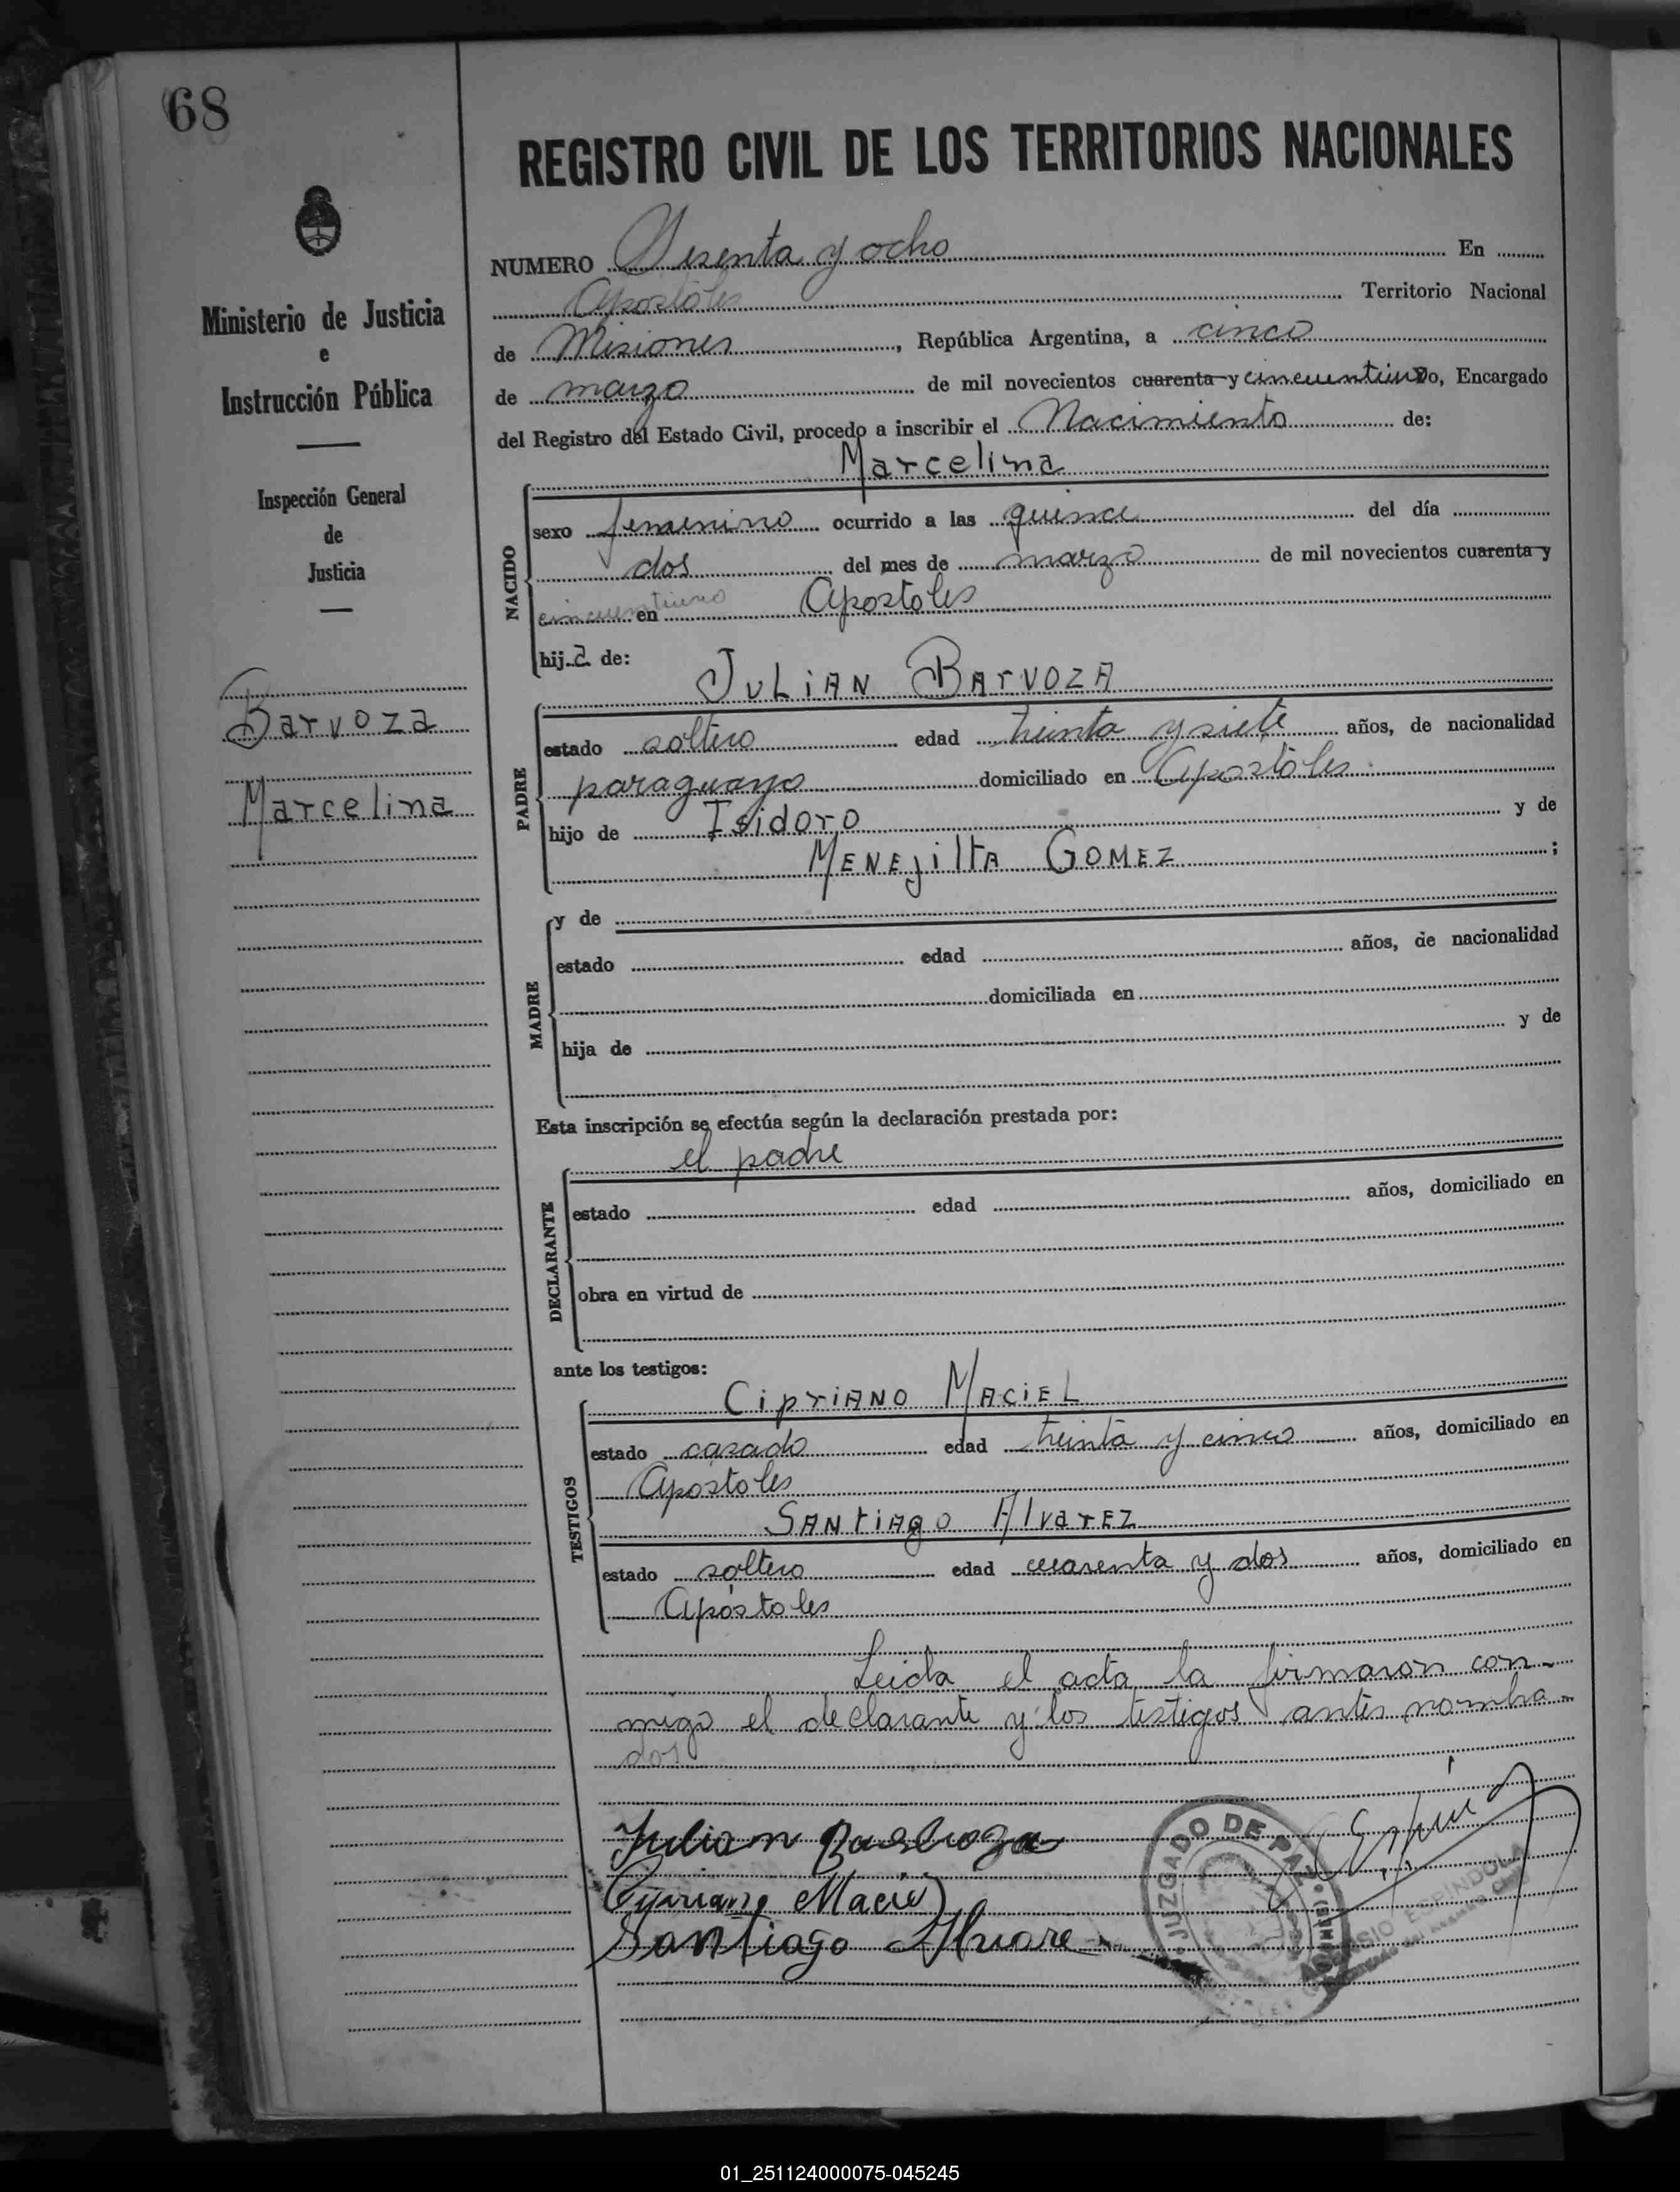 68
Ministerio de Justicia
e
Instrucción Pública
Inspección General
de
Justicia
Barvoza
Marcelina
REGISTRO CIVIL DE LOS TERRITORIOS NACIONALES
NUMERO Sesenta y ocho En
Apostoles Territorio Nacional
de Misiones, República Argentina, a cinco
de marzo de mil novecientos cuarenta y cincuentiuno, Encargado
del Registro del Estado Civil, procedo a inscribir el Nacimiento de:
Marcelina
NACIDO
sexo femenino ocurrido a las quince del día
dos del mes de marzo de mil novecientos cuarenta y
cincuentiuno en Apostoles
hija de:
JULIAN BArVOZA
PADRE
estado soltero edad treinta y siete años, de nacionalidad
paraguayo domiciliado en Apostoles
hijo de Isidoro y de
MENEjiltA GOMEZ;
MADRE
y de
estado edad años, de nacionalidad
domiciliada en
hija de y de
Esta inscripción se efectúa según la declaración prestada por:
el padre
DECLARANTE
estado edad años, domiciliado en
obra en virtud de
ante los testigos:
CipriANO MACiEL
TESTIGOS
estado casado edad treinta y cinco años, domiciliado en
Apostoles
SANtiAgo AlvarEZ
estado soltero edad cuarenta y dos años, domiciliado en
Apóstoles
Leida el acta la firmaron con-
migo el declarante y los testigos antes nombra-
dos
Julian Barboza
Cipriano Maciel
Santiago Alvare
JUZGADO DE PAZ
ESPINDOLA
01_251124000075-045245